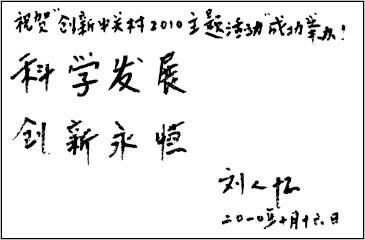 祝贺“创新中关村2010主题活动”成功举办！
科学发展
创新永恒
刘人怀
二〇一〇年十月十六日